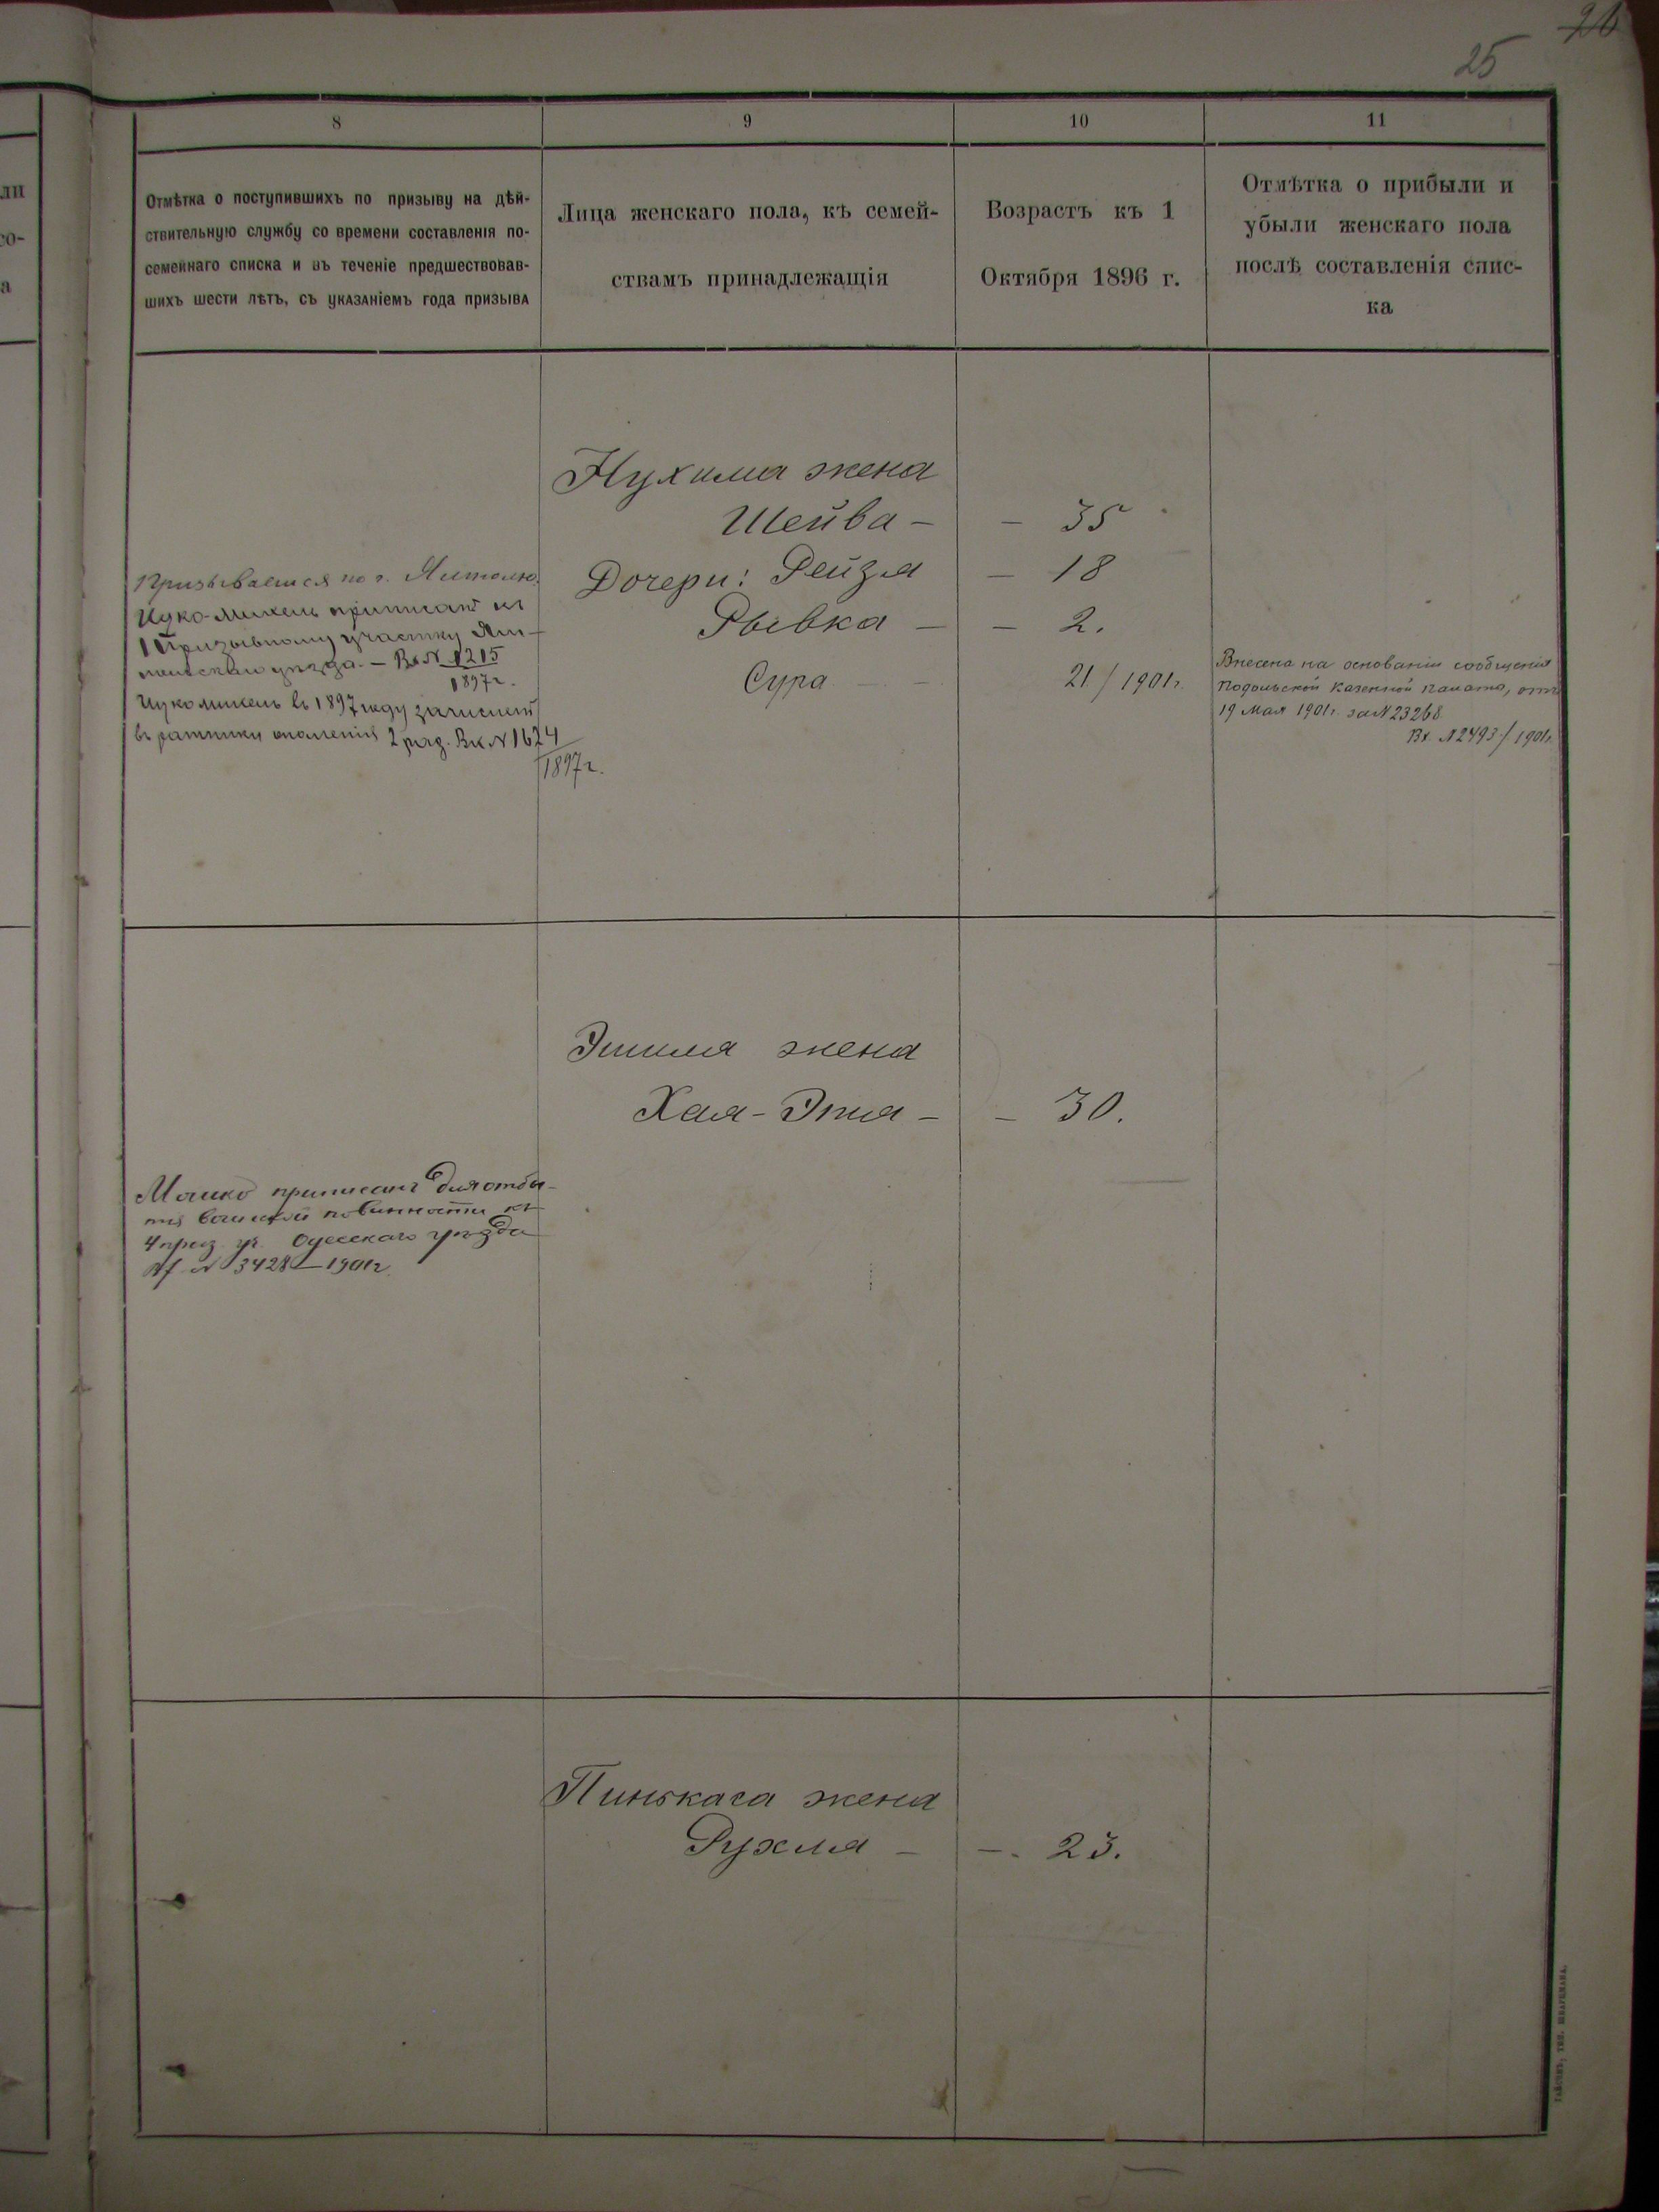 26
25
8
9
10
11
Отмѣтка о поступившихъ по призыву на дѣй-
ствительную службу со времени составленія по-
семейнаго списка и въ теченіе предшествовав-
шихъ шести лѣтъ, съ указаніемъ года призыва
Лица женскаго пола, къ семей-
ствамъ принадлежащія
Возрастъ къ 1
Октября 1896 г.
Отмѣтка о прибыли и
убыли женскаго пола
послѣ составленія спис-
ка
Призывается по г. Ямполю.
Ицко-Михель приписанъ къ
1 Призывному участку Ям-
польскаго уѣзда. — Вх № 1215
1897г.
Ицко михель въ 1897 году зачисленъ
въ ратники ополченія 2 разр. Вх. № 1624
1897г.
Нухима жена
Шейва — — 35
Дочери: Рейзя — 18
Рывка — — 2.
Сура 21/1901г.
Внесена на основаніи сообщенія
Подольской Казенной Палаты, отъ
19 Мая 1901г. за № 23268
Вх. № 2493/1901г.
Хая-Этя — — 30.
жена
Мошко приписанъ для отбы-
тія воинской повинности къ
4 приз. уч. Одесскаго уѣзда
№ 3428 — 1901г.
Пинькаса жена
Рухля — — 23.